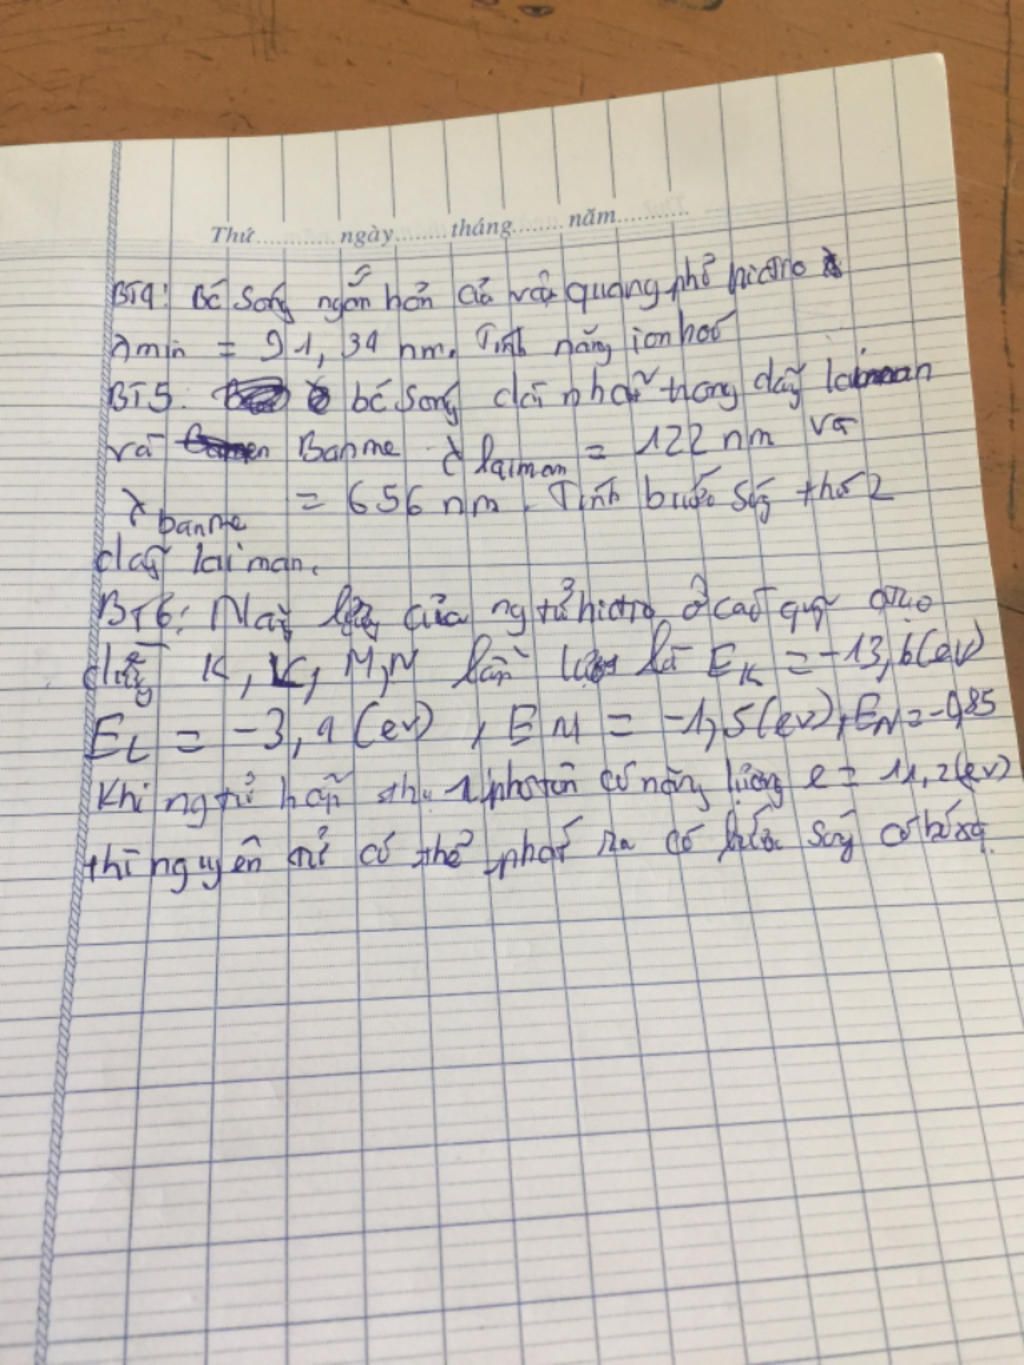 Thứ.............ngày.......tháng........năm...........
BT4: Bć Sóng ngắn hơn của vạch quang phổ hidro
λmin = 91,34 nm. Tính năng ion hoá
BT5. bć Sóng dài nhất trong dãy laiman
và Banme λ laiman = 122 nm và
λ banme = 656 nm. Tính bước sóng thứ 2
dãy laiman.
BT6: của ng tử hidro ở các quỹ đạo
dừng K, L, M, N lần lượt là EK = -13,6(ev)
EL = -3,4 (ev), EM = -1,5(ev), EN = -0,85
Khi ng tử hấp thụ 1 photon có năng lượng e = 11,2(ev)
thì nguyên tử có thể phát ra có sóng có bước